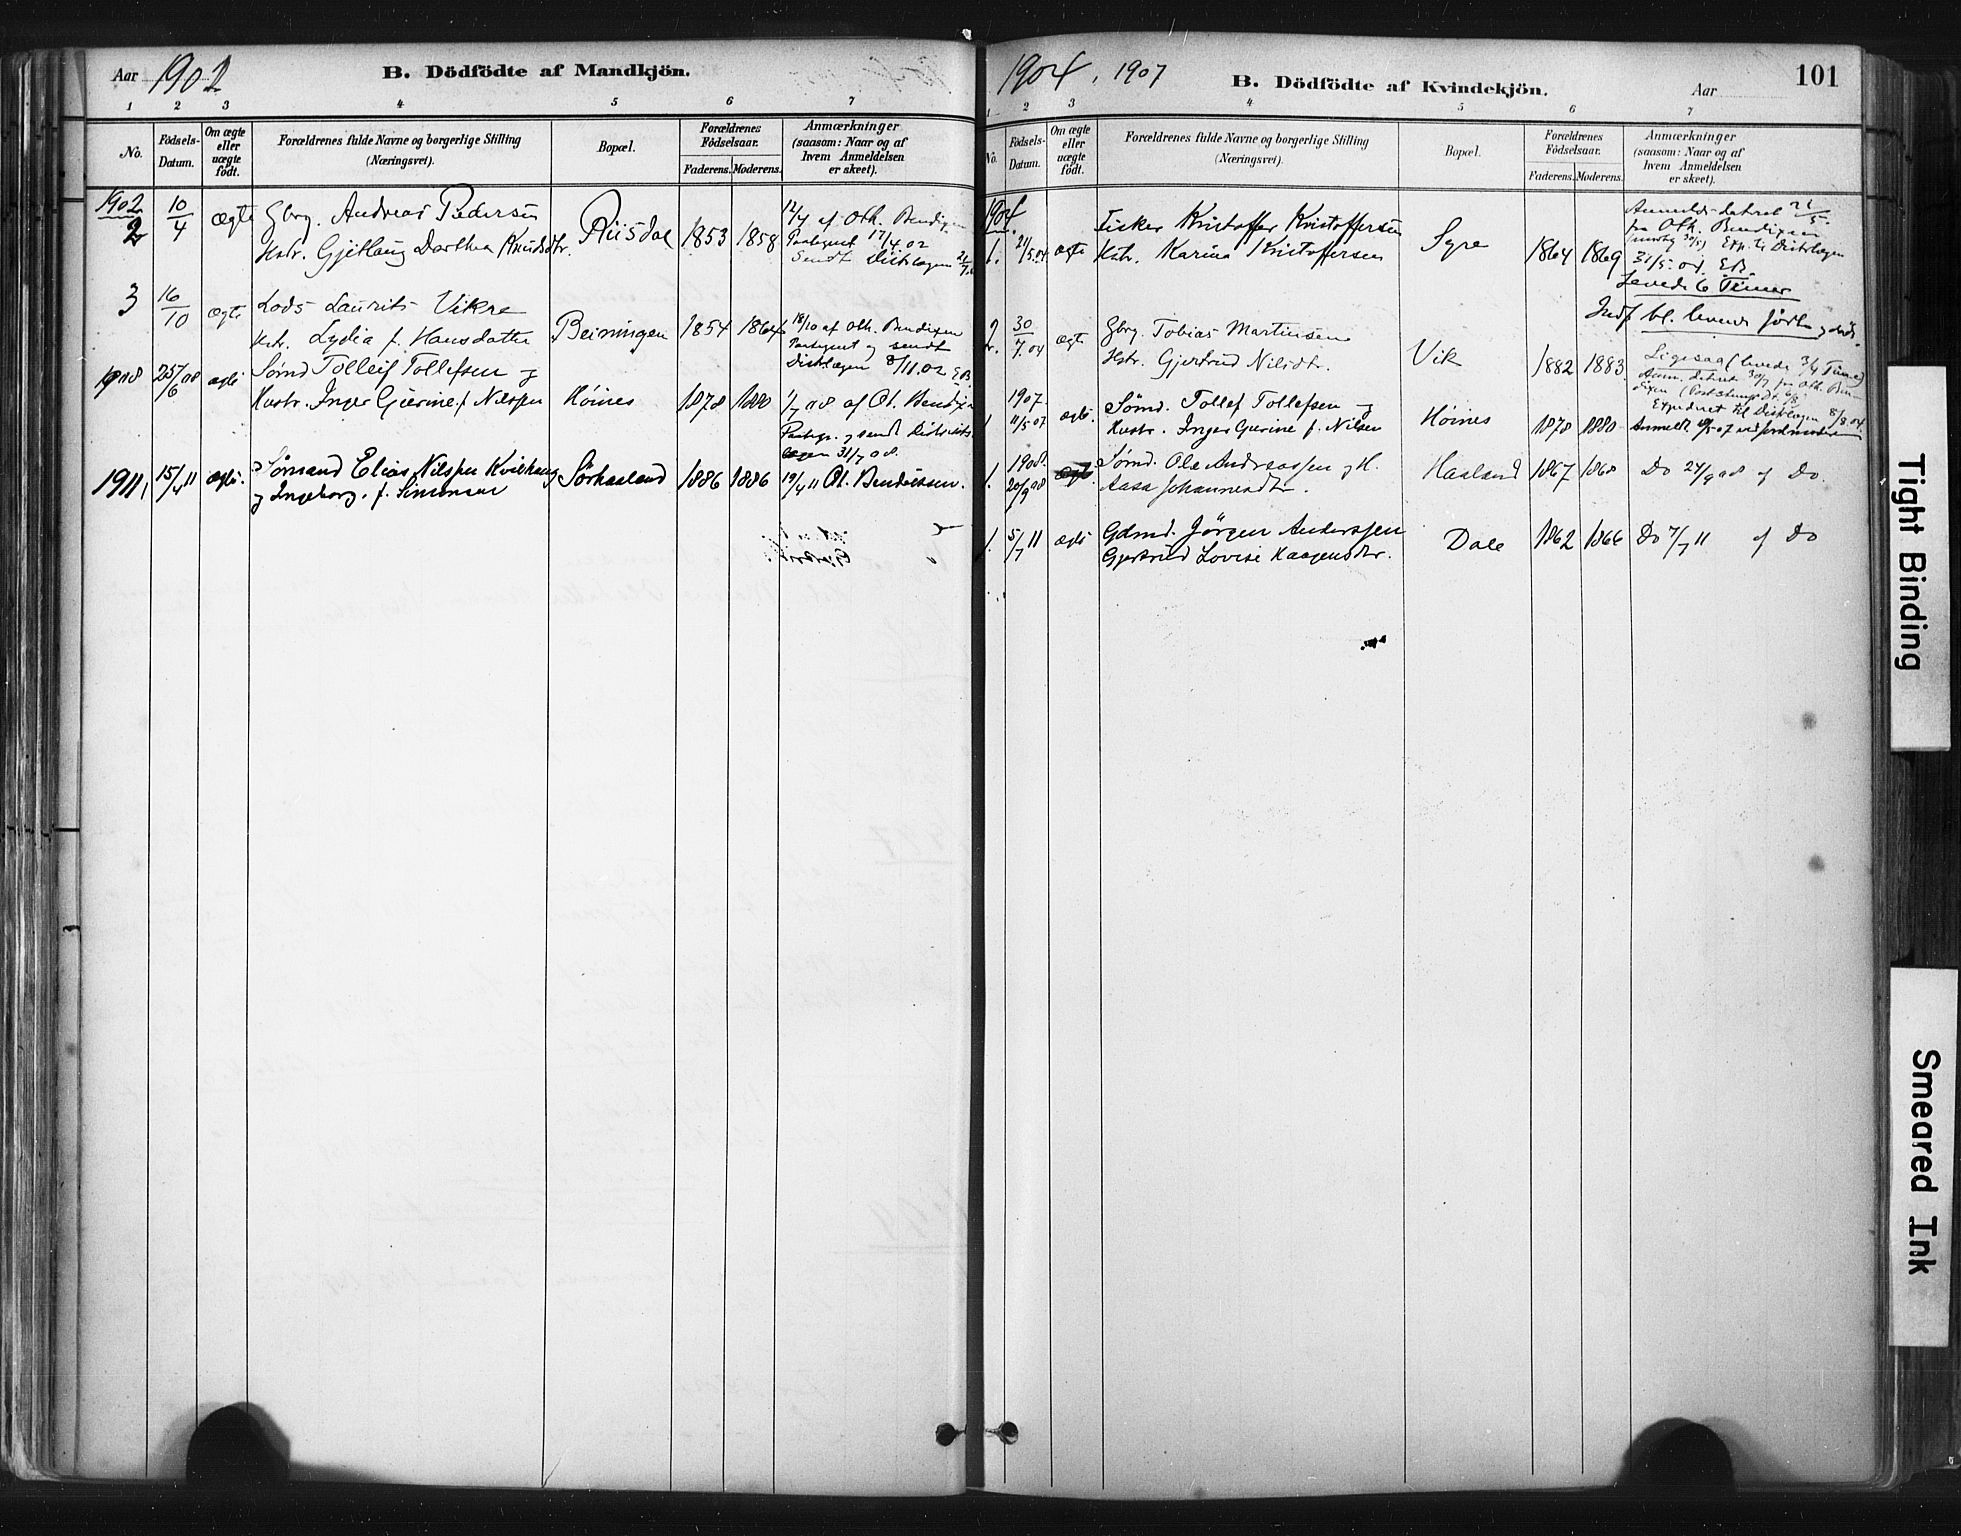 Aar 1902
B. Dödfödte af Mandkjön.
1 2 3 4 5 6 7
No.
Födsels-
Datum.
Om ægte
eller
uægte
födt.
Forældrenes fulde Navne og borgerlige Stilling
(Næringsvei).
Bopæl.
Forældrenes
Födselsaar.
Faderens. Moderens.
Anmærkninger
(saasom: Naar og af
hvem Anmeldelsen
er skeet).
1902
2 10/4 ægte Gbrg. Andreas Pedersen
Hstr. Gjetlaug Dorthea Knudsdtr.
Riisdal 1853 1858
12/4 af Oth. Bendixen
17/4 02
Sendt Distrlægen
3 16/10 ægte Lods Laurits Vikre
Hstr. Lydia f. Hansdatter
Beiningen 1854 1864
18/10 af Oth. Bendixen
og sendt
Distrlægen 8/11.02 EB.
1908 25/6 08 ægte Sömd Tolleif Tollefsen og
Hustr. Inger Gjerine f. Nilssen
Höines 1878 1880
1/7 08 af Ot. Bendixen
og sendt Distrikts-
lægen 31/7 08.
1911, 15/4 11 ægte. Sömand Elias Nilssen Kvilhaug
og Ingeborg, f. Simonsen
Sörhaaland 1886 1886 19/4 11 Ot. Bendixsen.
1904, 1907
B. Dödfödte af Kvindekjön.
Aar
101
1 2 3 4 5 6 7
No.
Födsels-
Datum.
Om ægte
eller
uægte
födt.
Forældrenes fulde Navne og borgerlige Stilling
(Næringsvei).
Bopæl.
Forældrenes
Födselsaar.
Faderens. Moderens.
Anmærkninger
(saasom: Naar og af
hvem Anmeldelsen
er skeet).
1904.
1. 21/5.04 ægte Fisker Kristoffer Kristoffersen
Hstr. Karina Kristoffersen
Syre 1864 1869
Anmeld. dateret 21/5.
fra Oth. Bendixen
Exp. til Distrlægen
31/5.04. EB.
Levede 6 Timer
Indf bl. levende födte og döde.
2. 30/7.04 ægte Gbrg. Tobias Martinsen
Hstr. Gjertrud Nilsdtr.
Vik 1882 1883
Ligesaa (levede 3/4 Time)
Anm. dateret 30/7 fra Oth. Ben-
dixen (Poststemp. dt. 6/8)
Expederet til Distrlægen 8/8.04.
1907
1 11/5 07 ægte. Sömd. Tollef Tollefsen og
Hustr. Inger Gjerine f. Nilsen
Höines 1878 1880
Anmeldt 07 ved Jordmoderen
1908.
1. 20/9 08 Sömd. Ole Andreassen og H.
Aasa Johannesdtr.
Haaland 1867 1868 Do 24/9 08 af Do.
1. 5/7 11 ægte Gdmd. Jörgen Anderssen
Gjertrud Lovise Haagensdtr.
Dale 1862 1866 Do 7/7 11 af Do
Tight Binding
Smeared Ink